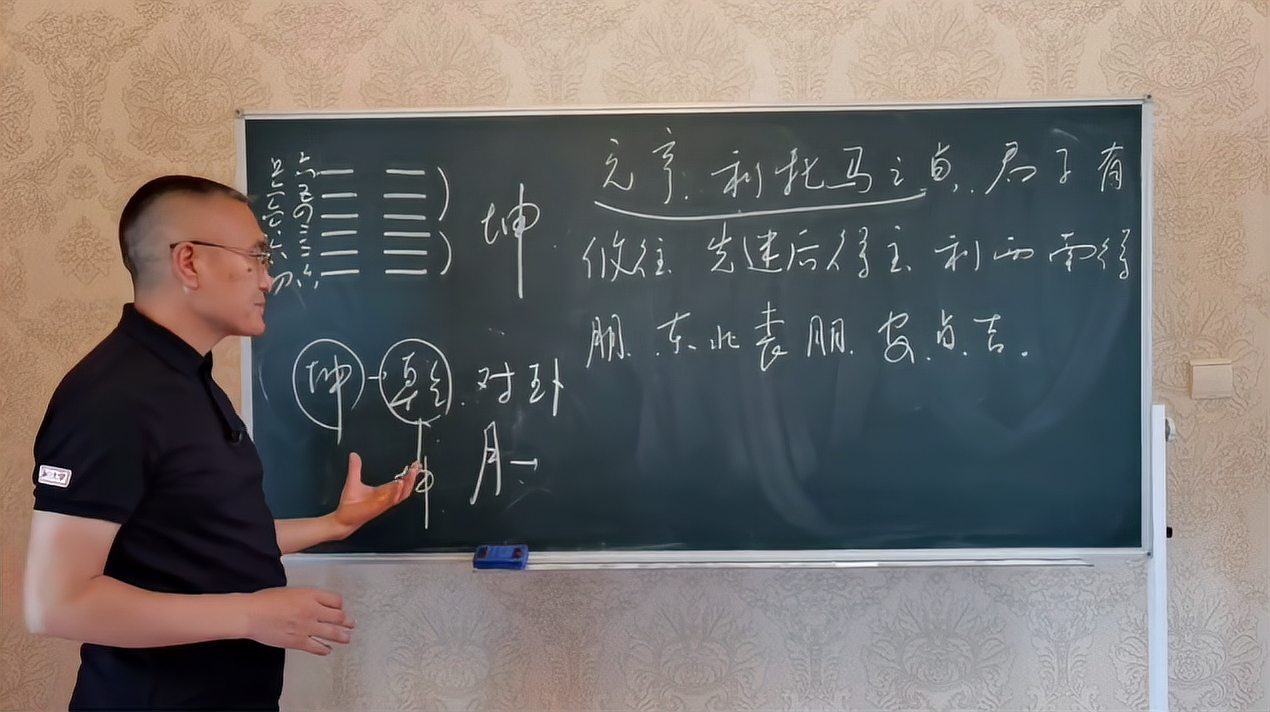 六
五
四
三
二
六
坤
元亨.利牝马之贞.君子有
攸往.先迷后得主.利西南得
朋.东北丧朋.安贞吉.
坤→乾.对卦
坤 月→